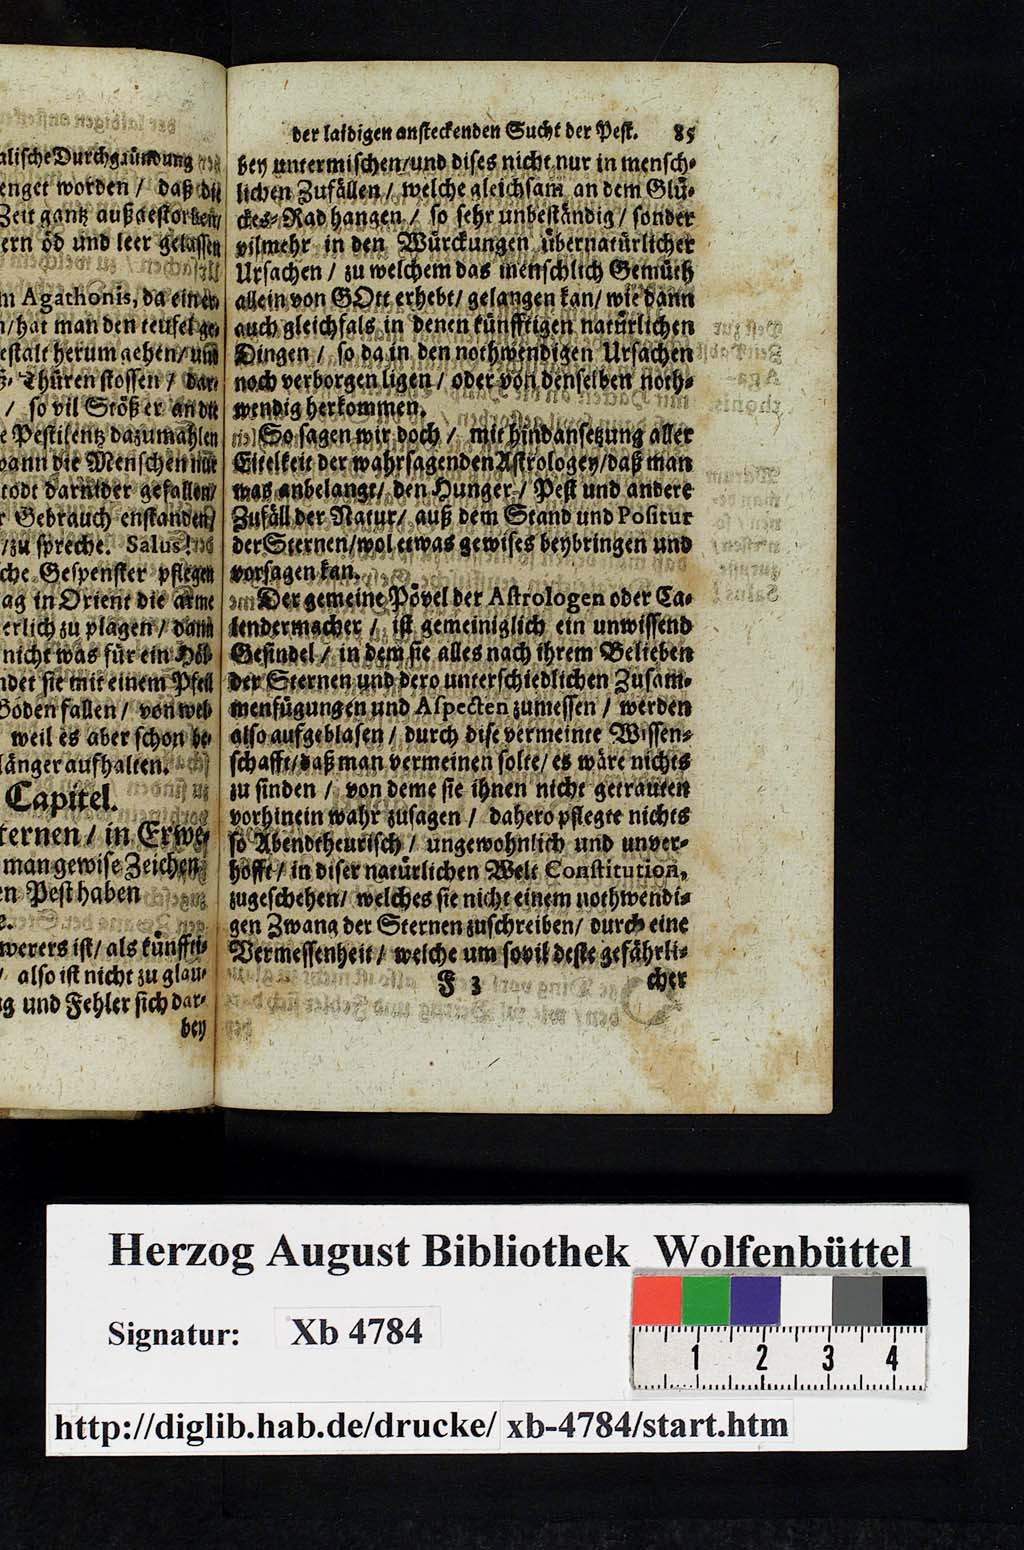 alische Durchgründung
enget worden / daß die
Zeit gantz außgestorben/
ern öd und leer gelassen
m Agathonis, da einer
n/hat man den teufel ge-
estalt herum gehen/und
ß-Thüren stossen / dar-
/ so vil Stöß er an die
e Pestilentz dazumahlen
wann die Menschen mit
todt darnider gefallen/
r Gebrauch enstanden/
/zu spreche. Salus!
che Gespenster pflegen
ag in Orient die arme
erlich zu plagen / dann
nicht was für ein Höl-
ndet sie mit einem Pfeil
Boden fallen / von wel-
weil es aber schon be-
länger aufhalten.
Capitel.
ternen / in Erwe-
man gewise Zeichen
en Pest haben
e.
werers ist/ als künffti-
/ also ist nicht zu glau-
g und Fehler sich dar-
bey
der laidigen ansteckenden Sucht der Pest. 85
bey untermischen/und dises nicht nur in mensch-
lichen Zufällen / welche gleichsam an dem Glü-
ckes-Rad hangen / so sehr unbeständig / sonder
vilmehr in den Würckungen übernatürlicher
Ursachen / zu welchem das menschlich Gemüth
allein von GOtt erhebt/ gelangen kan/ wie dann
auch gleichfals in denen künfftigen natürlichen
Dingen / so da in den nothwendigen Ursachen
noch verborgen ligen / oder von denselben noth-
wendig herkommen.
So sagen wir doch / mit hindansetzung aller
Eitelkeit der wahrsagenden Astrologey/daß man
was anbelangt/ den Hunger / Pest und andere
Zufäll der Natur/ auß dem Stand und Positur
der Sternen/wol etwas gewises beybringen und
vorsagen kan.
Der gemeine Pövel der Astrologen oder Ca-
lendermacher / ist gemeiniglich ein unwissend
Gesindel / in dem sie alles nach ihrem Belieben
der Sternen und dero unterschiedlichen Zusam-
menfügungen und Aspecten zumessen / werden
also aufgeblasen / durch dise vermeinte Wissen-
schafft/daß man vermeinen solte/ es wäre nichts
zu finden / von deme sie ihnen nicht getrauten
vorhinein wahr zusagen / dahero pflegte nichts
so Abendtheurisch / ungewohnlich und unver-
hofft / in diser natürlichen Welt Constitution,
zugeschehen/ welches sie nicht einem nothwendi-
gen Zwang der Sternen zuschreiben/ durch eine
Vermessenheit / welche um sovil deste gefährli-
F 3 cher
Herzog August Bibliothek Wolfenbüttel
Signatur: Xb 4784
1 2 3 4
http://diglib.hab.de/drucke/ xb-4784/start.htm